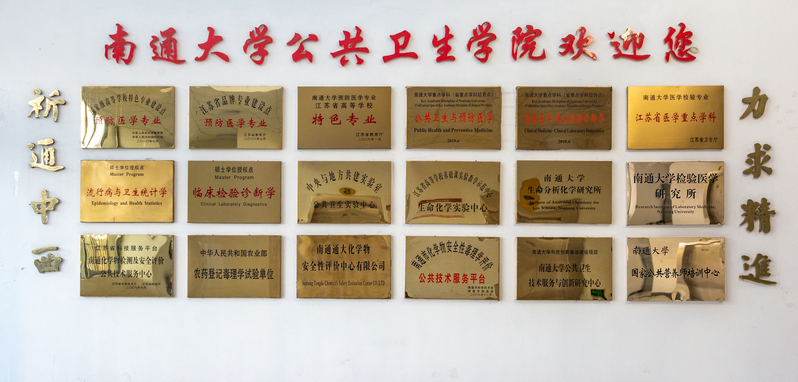 南通大学公共卫生学院欢迎您
祈通中西
预防医学专业
江苏省品牌专业建设点
预防医学专业
江苏省教育厅
南通大学预防医学专业
江苏省高等学校
特色专业
江苏省教育厅
南通大学重点学科(省重点学科培育点)
公共卫生与预防医学
Public Health and Preventive Medicine
2019.6
南通大学重点学科(省重点学科培育点)
Clinical Medicine: Clinical Laboratory Diagnostics
2019.6
南通大学医学检验专业
江苏省医学重点学科
江苏省卫生厅
硕士学位授权点
Master Program
流行病与卫生统计学
Epidemiology and Health Statistics
硕士学位授权点
Master Program
临床检验诊断学
Clinical Laboratory Diagnostics
中央与地方共建实验室
公共卫生实验中心
生命化学实验中心
南通大学
生命分析化学研究所
南通大学检验医学
研究所
Research Institute of Laboratory Medicine,
Nantong University
江苏省科技服务平台
南通化学物检测及安全评价
公共技术服务中心
中华人民共和国农业部
农药登记毒理学试验单位
南通通大化学物
安全性评价中心有限公司
南通市化学物安全性毒理学评价
公共技术服务平台
南通大学公共卫生
技术服务与创新研究中心
南通大学
国家公共营养师培训中心
力求精進